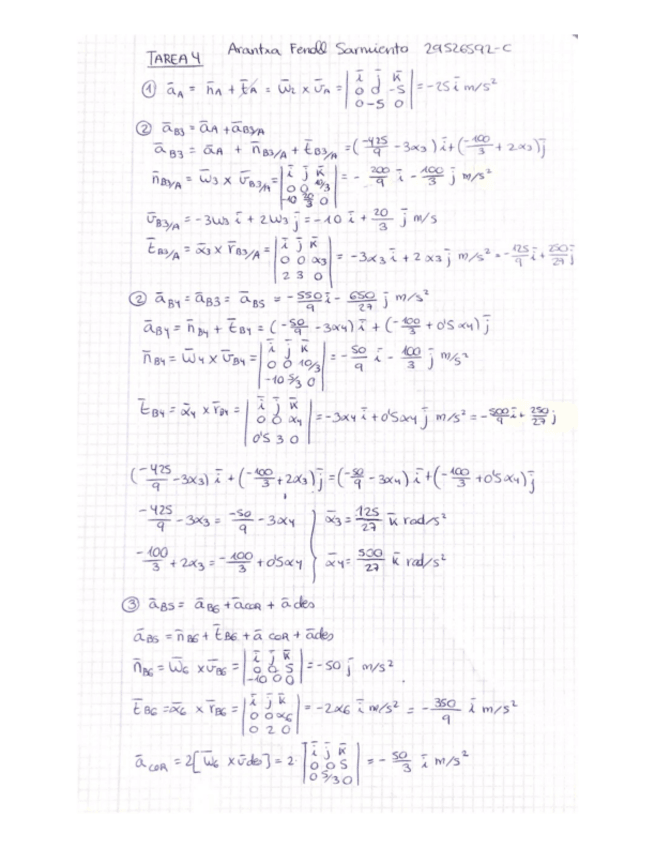 TAREA 4 Arantxa Fenoll Sarmiento 29526592-C
① āA = n̄A + t̄A = ω̄2 × v̄A = | ī j̄ k̄ | 0 0 -5 | 0 -5 0 | = -25 ī m/s²
② āB3 = āA + āB3/A
āB3 = āA + n̄B3/A + t̄B3/A = (-425/9 - 3α3) ī + (-100/3 + 2α3) j̄
n̄B3/A = ω̄3 × v̄B3/A = | ī j̄ k̄ | 0 0 10/3 | -10 20/3 0 | = - 200/9 ī - 100/3 j̄ m/s²
v̄B3/A = -3ω3 ī + 2ω3 j̄ = -10 ī + 20/3 j̄ m/s
t̄B3/A = ᾱ3 × r̄B3/A = | ī j̄ k̄ | 0 0 α3 | 2 3 0 | = -3α3 ī + 2α3 j̄ m/s² = -125/9 ī + 250/27 j̄
② āB4 = āB3 = āB5 = -550/9 ī - 650/27 j̄ m/s²
āB4 = n̄B4 + t̄B4 = (-50/9 - 3α4) ī + (-100/3 + 0'5α4) j̄
n̄B4 = ω̄4 × v̄B4 = | ī j̄ k̄ | 0 0 10/3 | -10 5/3 0 | = - 50/9 ī - 100/3 j̄ m/s²
t̄B4 = ᾱ4 × r̄B4 = | ī j̄ k̄ | 0 0 α4 | 0'5 3 0 | = -3α4 ī + 0'5α4 j̄ m/s² = -500/9 ī + 250/27 j̄
(-425/9 - 3α3) ī + (-100/3 + 2α3) j̄ = (-50/9 - 3α4) ī + (-100/3 + 0'5α4) j̄
-425/9 - 3α3 = -50/9 - 3α4 } ᾱ3 = 125/27 k̄ rad/s²
-100/3 + 2α3 = -100/3 + 0'5α4 } ᾱ4 = 500/27 k̄ rad/s²
③ āB5 = āB6 + āCOR + ā des
āB5 = n̄B6 + t̄B6 + ā COR + ādes
n̄B6 = ω̄6 × v̄B6 = | ī j̄ k̄ | 0 0 5 | -10 0 0 | = -50 j̄ m/s²
t̄B6 = ᾱ6 × r̄B6 = | ī j̄ k̄ | 0 0 α6 | 0 2 0 | = -2α6 ī m/s² = - 350/9 ī m/s²
āCOR = 2[ω̄6 × v̄des] = 2· | ī j̄ k̄ | 0 0 5 | 0 5/3 0 | = - 50/3 ī m/s²